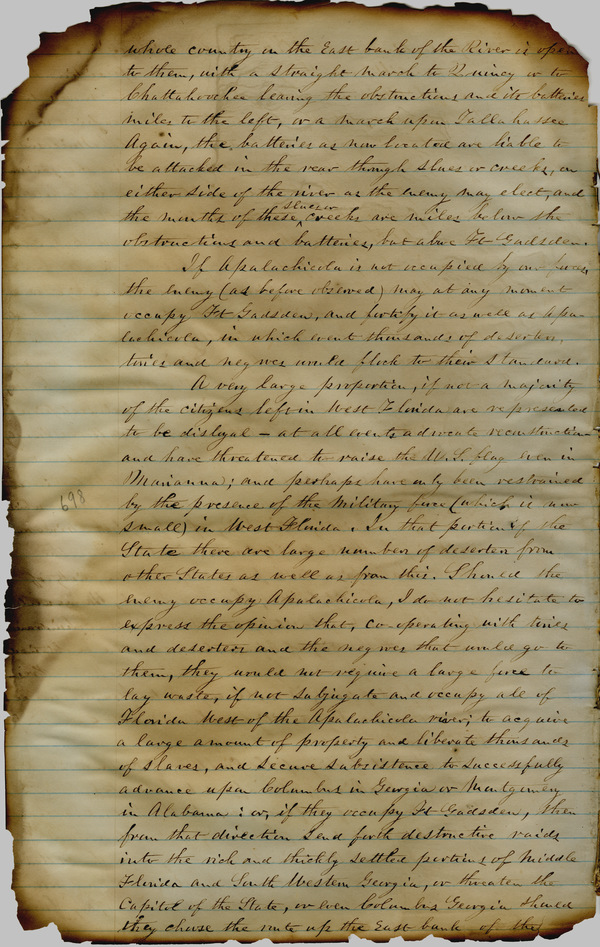 whole country on the East bank of the River is open
to them, with a straight march to Quincy or to
Chattahoochee leaving the obstructions and its batteries
miles to the left, or a march upon Tallahassee
Again, the batteries as now located are liable to
be attacked in the rear through slues or creeks, on
either side of the river as the enemy may elect, and
slues or
the mouths of these creeks are miles below the
obstructions and batteries, but above Ft Gadsden.
If Apalachicola is not occupied by our forces
the enemy (as before observed) may at any moment
occupy Ft Gadsden, and fortify it as well as Apa-
lachicola, in which event thousands of deserters,
tories and negroes would flock to their standard.
A very large proportion, if not a majority
of the citizens left in West Florida are represented
to be disloyal – at all events advocate reconstruction
and have threatened to raise the U.S. flag even in
Marianna; and perhaps have only been restrained
by the presence of the Military force (which is now
698
small) in West Florida. In that portion of the
State there are large numbers of deserters from
other States as well as from this. Should the
enemy occupy Apalachicola, I do not hesitate to
express the opinion that, co-operating with tories
and deserters and the negroes that would go to
them, they would not require a large force to
lay waste, if not subjugate and occupy all of
Florida West of the Apalachicola river; to acquire
a large amount of property and liberate thousands
of slaves, and secure subsistence to successfully
advance upon Columbus in Georgia or Montgomery
in Alabama: or, if they occupy Ft Gadsden, then
from that direction send forth destructive raids
into the rich and thickly settled portions of Middle
Florida and South Western Georgia, or threaten the
Capitol of the State, or even Columbus Georgia should
they choose the route up the East bank of the